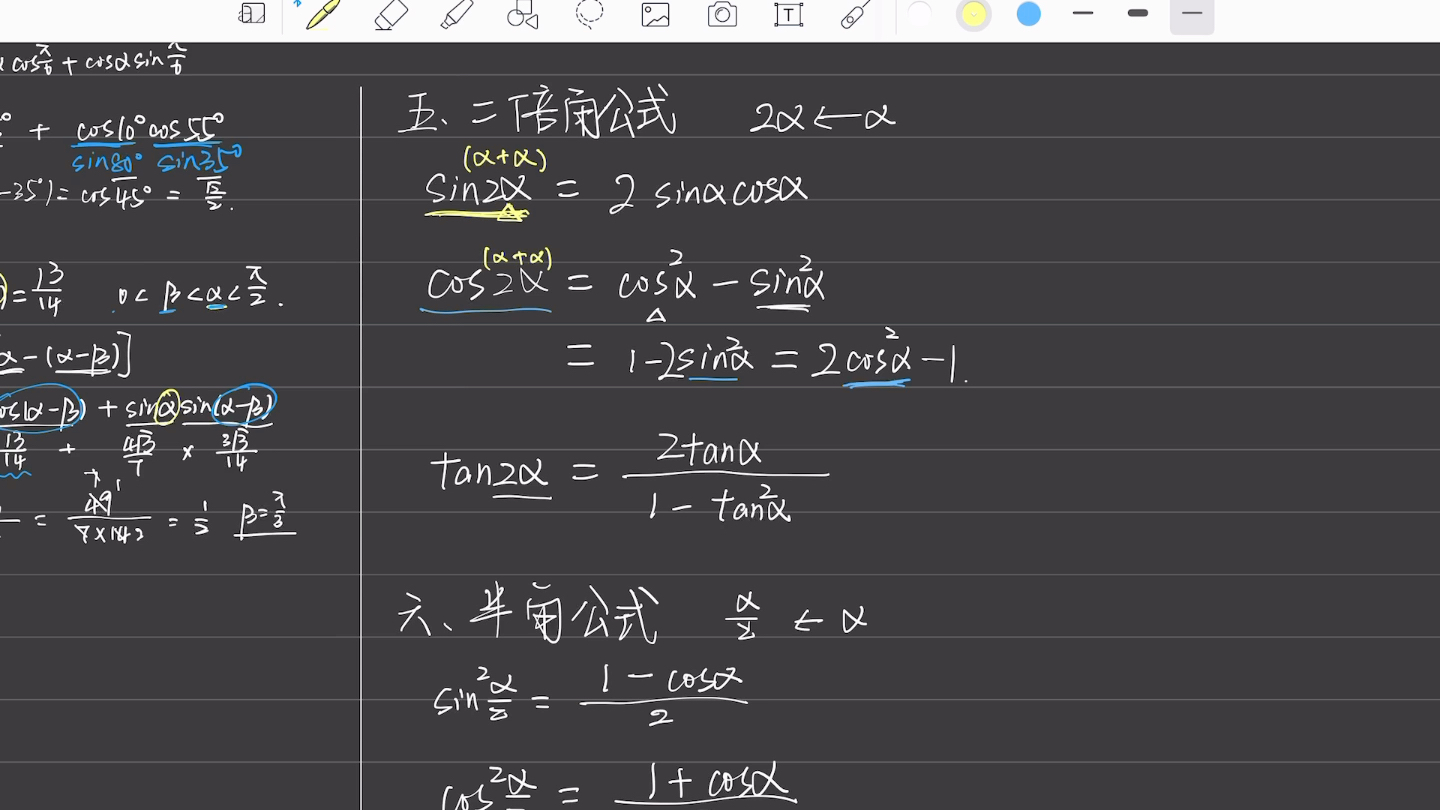 cos π/6 + cosα sin π/6
+ cos10° cos55°
sin80° sin35°
-35°) = cos45° = √2/2.
= 13/14 0 < β < α < π/2.
α - (α-β)]
cos(α-β) + sinα sin(α-β)
13/14 + 4√3/7 × 3√3/14
= 49/7×14 2 = 1/2 β = π/3
五、二倍角公式 2α ← α
(α+α)
sin2α = 2 sinα cosα
(α+α)
cos2α = cos²α - sin²α
= 1-2sin²α = 2cos²α -1.
tan2α = 2tanα / 1 - tan²α
六、半角公式 α/2 ← α
sin² α/2 = 1 - cosα / 2
cos² α = 1 + cosα
T